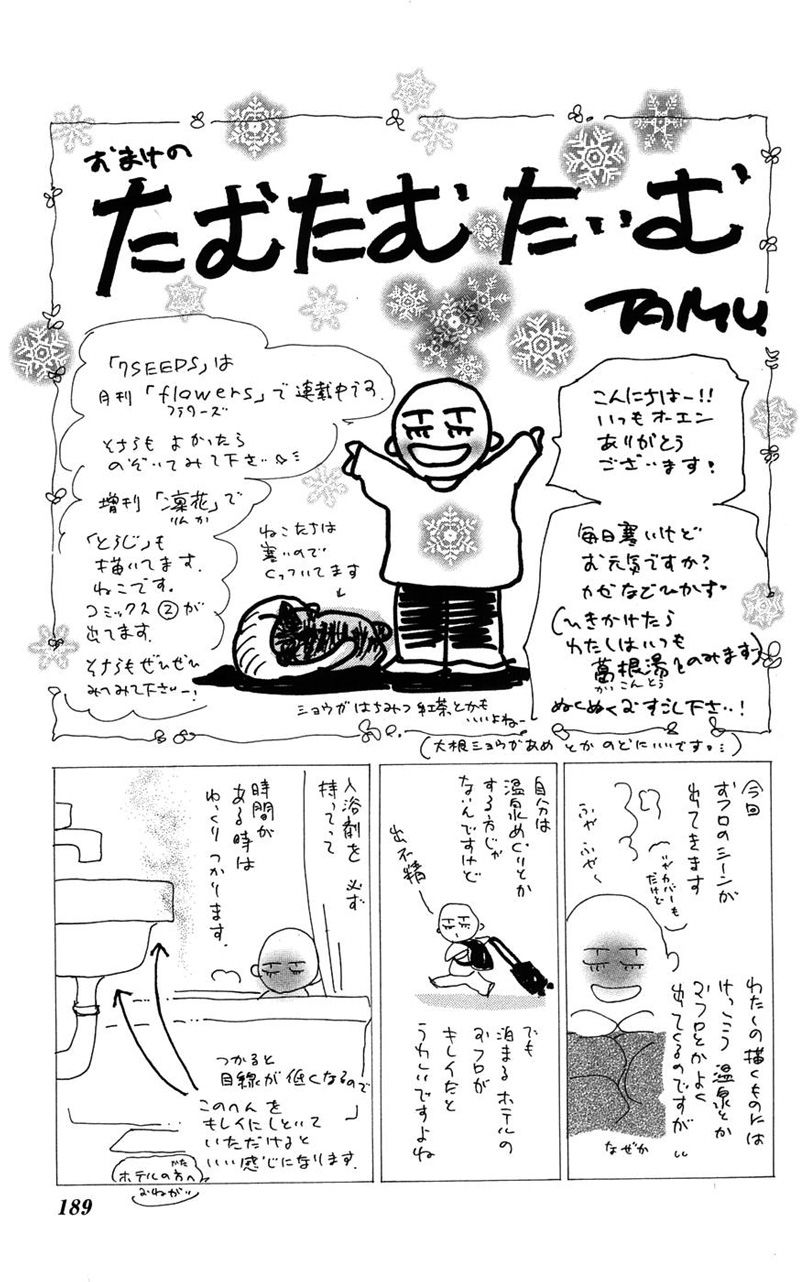 おまけの
たむたむたいむ
TAMU.
こんにちはー!!
いつもオーエン
ありがとう
ございます!
毎日寒いけど
お元気ですか?
かぜなどひかず
(ひきかけたら
わたしはいつも
葛根湯をのみます)
かっこんとう
ぬくぬくおすごし下さい!
「7SEEDS」は
月刊「flowers」で連載中です。
フラワーズ
そちらもよかったら
のぞいてみて下さい
増刊「凛花」で
りんか
「とらじ」も
描いてます。
ねこです。
コミックス②が
出てます。
そちらもぜひぜひ
みてみて下さいー!
ねこたちは
寒いので
くっついてます
ショウガはちみつ紅茶とかも
いいよねー
(大根ショウガあめとかのどにいいです。)
今回
おフロのシーンが
出てきます
ジャカバーも
だけど
ふや ふや〜
わたしの描くものには
けっこう温泉とか
おフロとかよく
出てくるのですが
なぜか
自分は
温泉めぐりとか
する方じゃ
ないんですけど
出不精
でも
泊まるホテルの
おフロが
キレイだと
うれしいですよね
入浴剤を必ず
持ってって
時間が
ある時は
ゆっくりつかります。
つかると
目線が低くなるので
このへんを
キレイにしといて
いただけると
いい感じになります。
ホテルの方へ
かた
おねがい
189